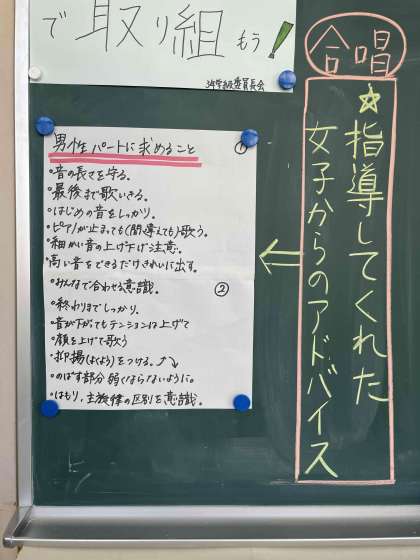 で取り組もう!
3年学級委員長会
合唱
☆指導してくれた
女子からのアドバイス
男性パートに求めること
①
・音の長さを守る。
・最後まで歌いきる。
・はじめの音をしっかり。
・ピアノが止まっても(間違えても)歌う。
・細かい音の上げ下げ注意。
・高い音をできるだけきれいに出す。
・みんなで合わせる意識。
②
・終わりまでしっかり。
・音が下がってもテンションは上げて
・顔を上げて歌う
・抑揚(よくよう)をつける。
・のばす部分弱くならないように。
・はもり、主旋律の区別を意識。